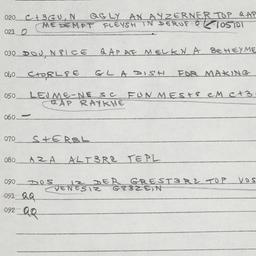 020 C+3GU,N QGLY AN AYZERNER TOP QAP
MEDEMPT FLEYSH IN DERUF 0 105101
021 0
030 DOU,NPICE QAPAT MELKNA BEHEYME
040 C+ORLSE GLADISH FOR MAKING
050 LEIME-NE SC FUNMES+S CM C+3
QAP RAYKHE
060 –
070 S+ERBL
080 AZA ALT3R2 TEPL
090 DOS IZ DER GREST3R2 TOP VOS
VENCSIZ G83ZEIN
091 QQ
092 QQ